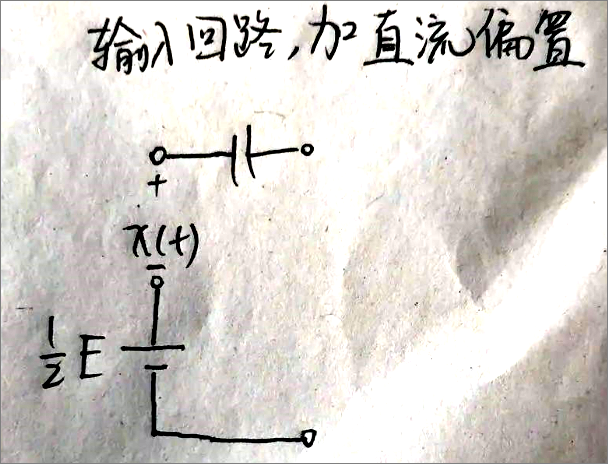 输入回路,加直流偏置
+
x(t)
-
1/2 E